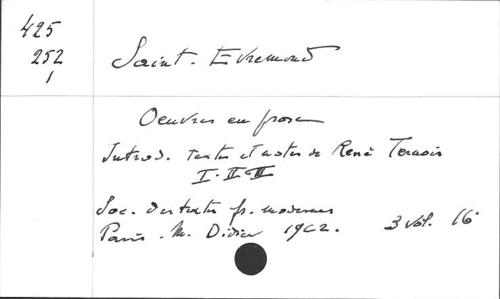 425
252
1
Saint-Evremond
Oeuvres en prose
Introd. textes et notes de René Ternois
I. II III
Soc. des textes fr. modernes
Paris. M. Didier 1962. 3 vol. 16°